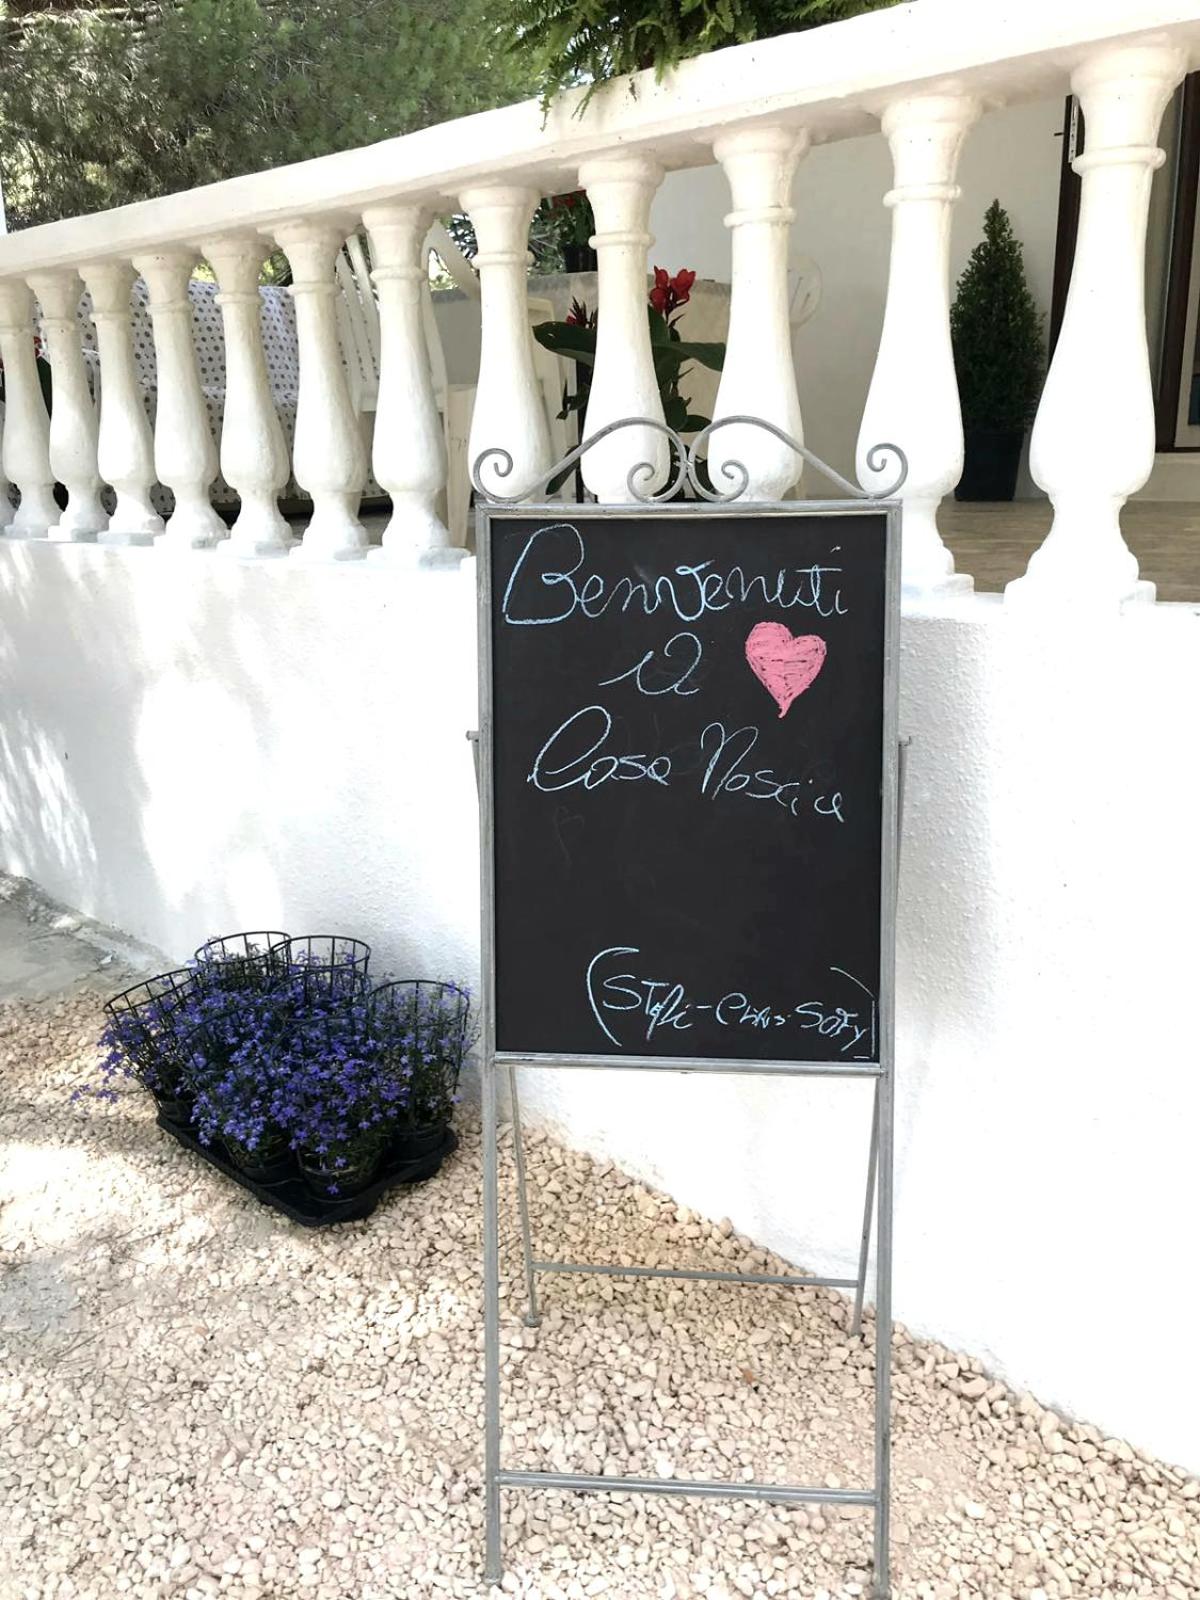 Benvenuti
a
Casa Noscia
(STEFI-CHRIS-SOFY)